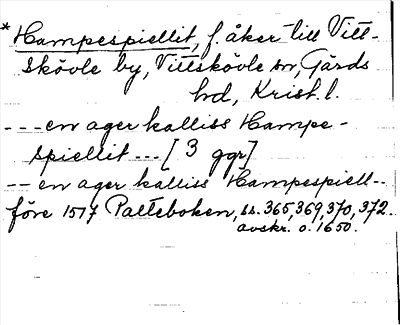 * Hampespiellit, f. åker till Vitt-
skövle by, Vittskövle sn, Gärds
hd, Krist. l.
--- en ager kalliss Hampe-
spiellit --- [3 ggr]
-- en ager kalliss Hampespiell--
före 1517 Palteboken, ss. 365, 369, 370, 372.
avskr. o. 1650.